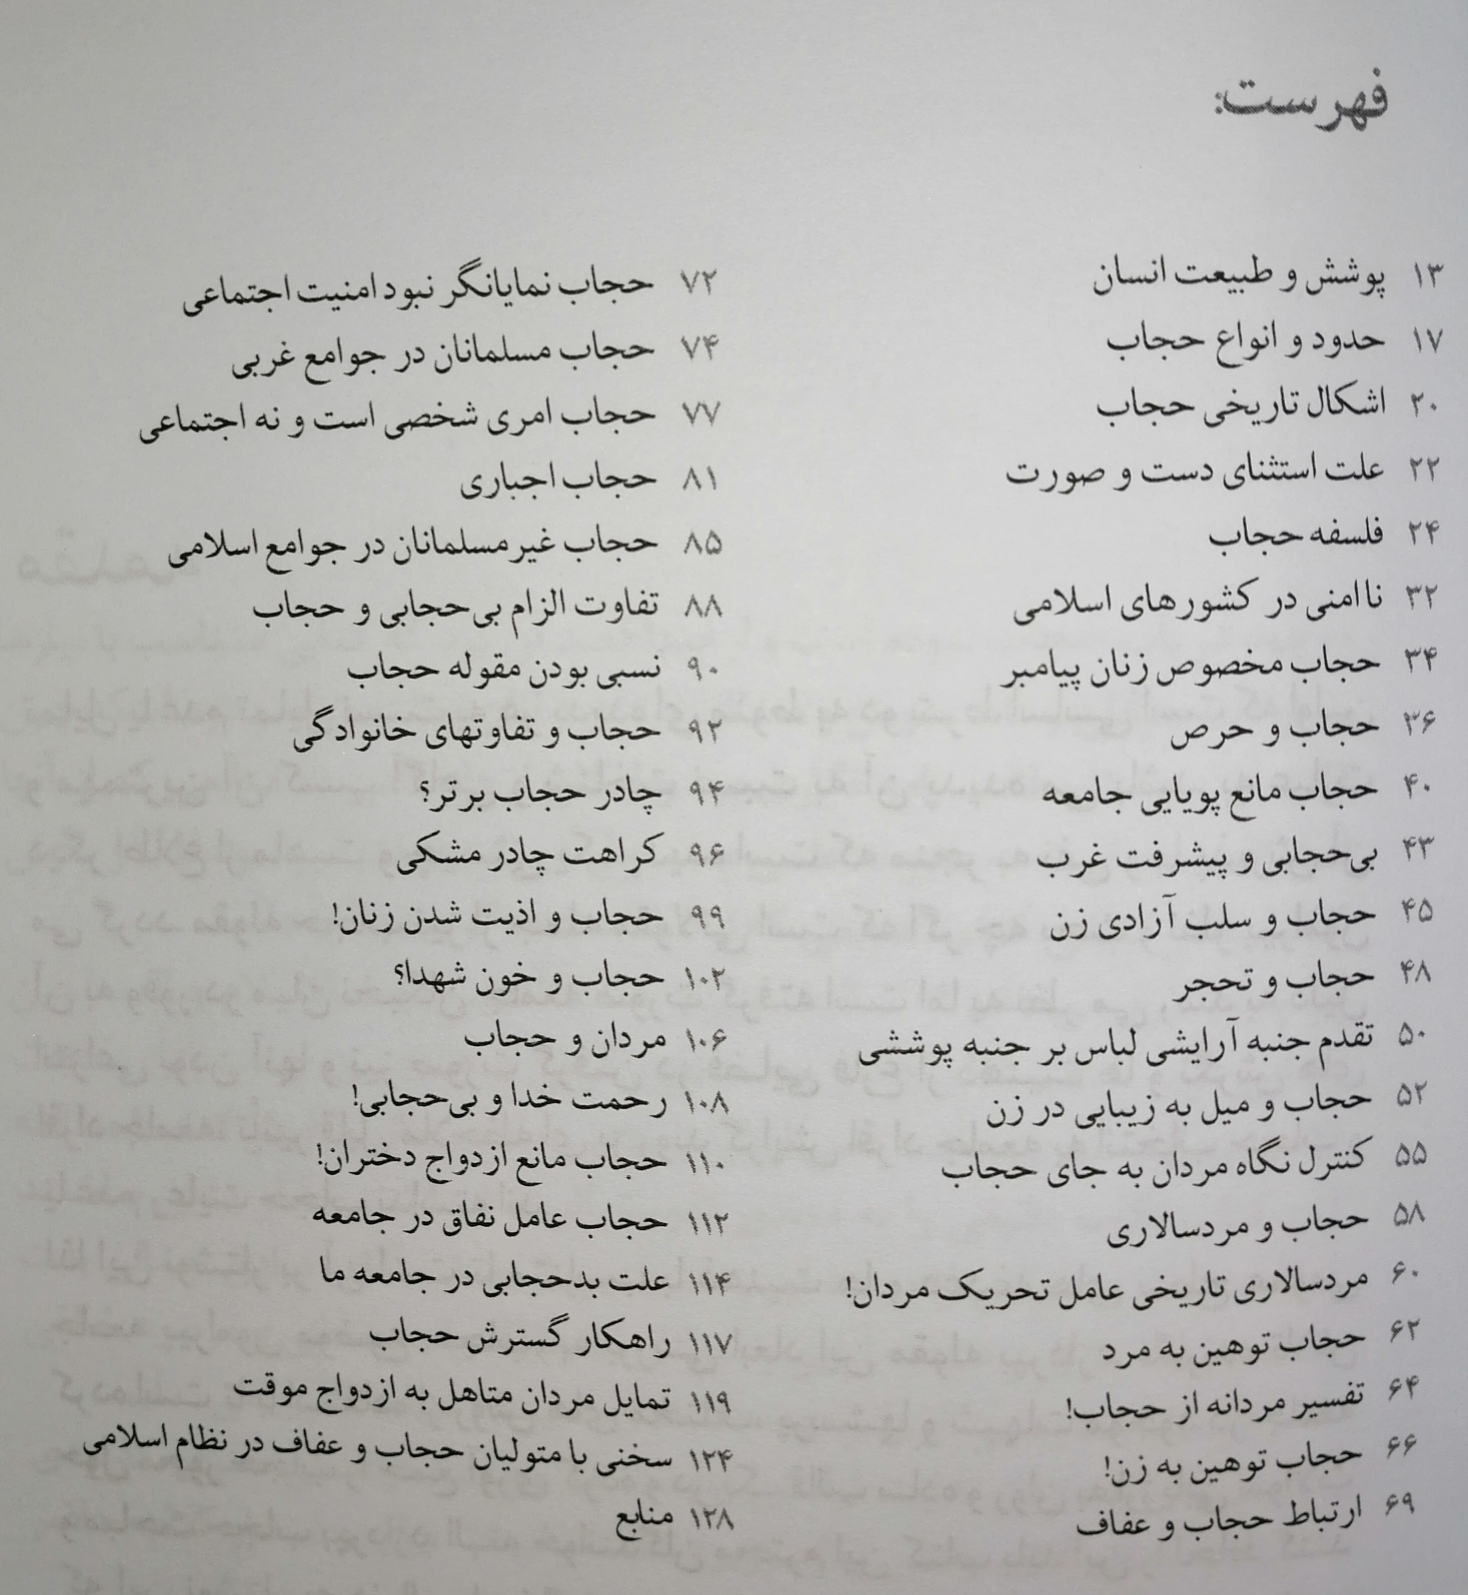 فهرست:
۱۳ پوشش و طبیعت انسان
۱۷ حدود و انواع حجاب
۲۰ اشکال تاریخی حجاب
۲۲ علت استثنای دست و صورت
۲۴ فلسفه حجاب
۳۲ ناامنی در کشورهای اسلامی
۳۴ حجاب مخصوص زنان پیامبر
۳۶ حجاب و حرص
۴۰ حجاب مانع پویایی جامعه
۴۳ بی‌حجابی و پیشرفت غرب
۴۵ حجاب و سلب آزادی زن
۴۸ حجاب و تحجر
۵۰ تقدم جنبه آرایشی لباس بر جنبه پوششی
۵۲ حجاب و میل به زیبایی در زن
۵۵ کنترل نگاه مردان به جای حجاب
۵۸ حجاب و مردسالاری
۶۰ مردسالاری تاریخی عامل تحریک مردان!
۶۲ حجاب توهین به مرد
۶۴ تفسیر مردانه از حجاب!
۶۶ حجاب توهین به زن!
۶۹ ارتباط حجاب و عفاف
۷۲ حجاب نمایانگر نبود امنیت اجتماعی
۷۴ حجاب مسلمانان در جوامع غربی
۷۷ حجاب امری شخصی است و نه اجتماعی
۸۱ حجاب اجباری
۸۵ حجاب غیرمسلمانان در جوامع اسلامی
۸۸ تفاوت الزام بی‌حجابی و حجاب
۹۰ نسبی بودن مقوله حجاب
۹۲ حجاب و تفاوتهای خانوادگی
۹۴ چادر حجاب برتر؟
۹۶ کراهت چادر مشکی
۹۹ حجاب و اذیت شدن زنان!
۱۰۲ حجاب و خون شهدا؟
۱۰۶ مردان و حجاب
۱۰۸ رحمت خدا و بی‌حجابی!
۱۱۰ حجاب مانع ازدواج دختران!
۱۱۲ حجاب عامل نفاق در جامعه
۱۱۴ علت بدحجابی در جامعه ما
۱۱۷ راهکار گسترش حجاب
۱۱۹ تمایل مردان متاهل به ازدواج موقت
۱۲۴ سخنی با متولیان حجاب و عفاف در نظام اسلامی
۱۲۸ منابع